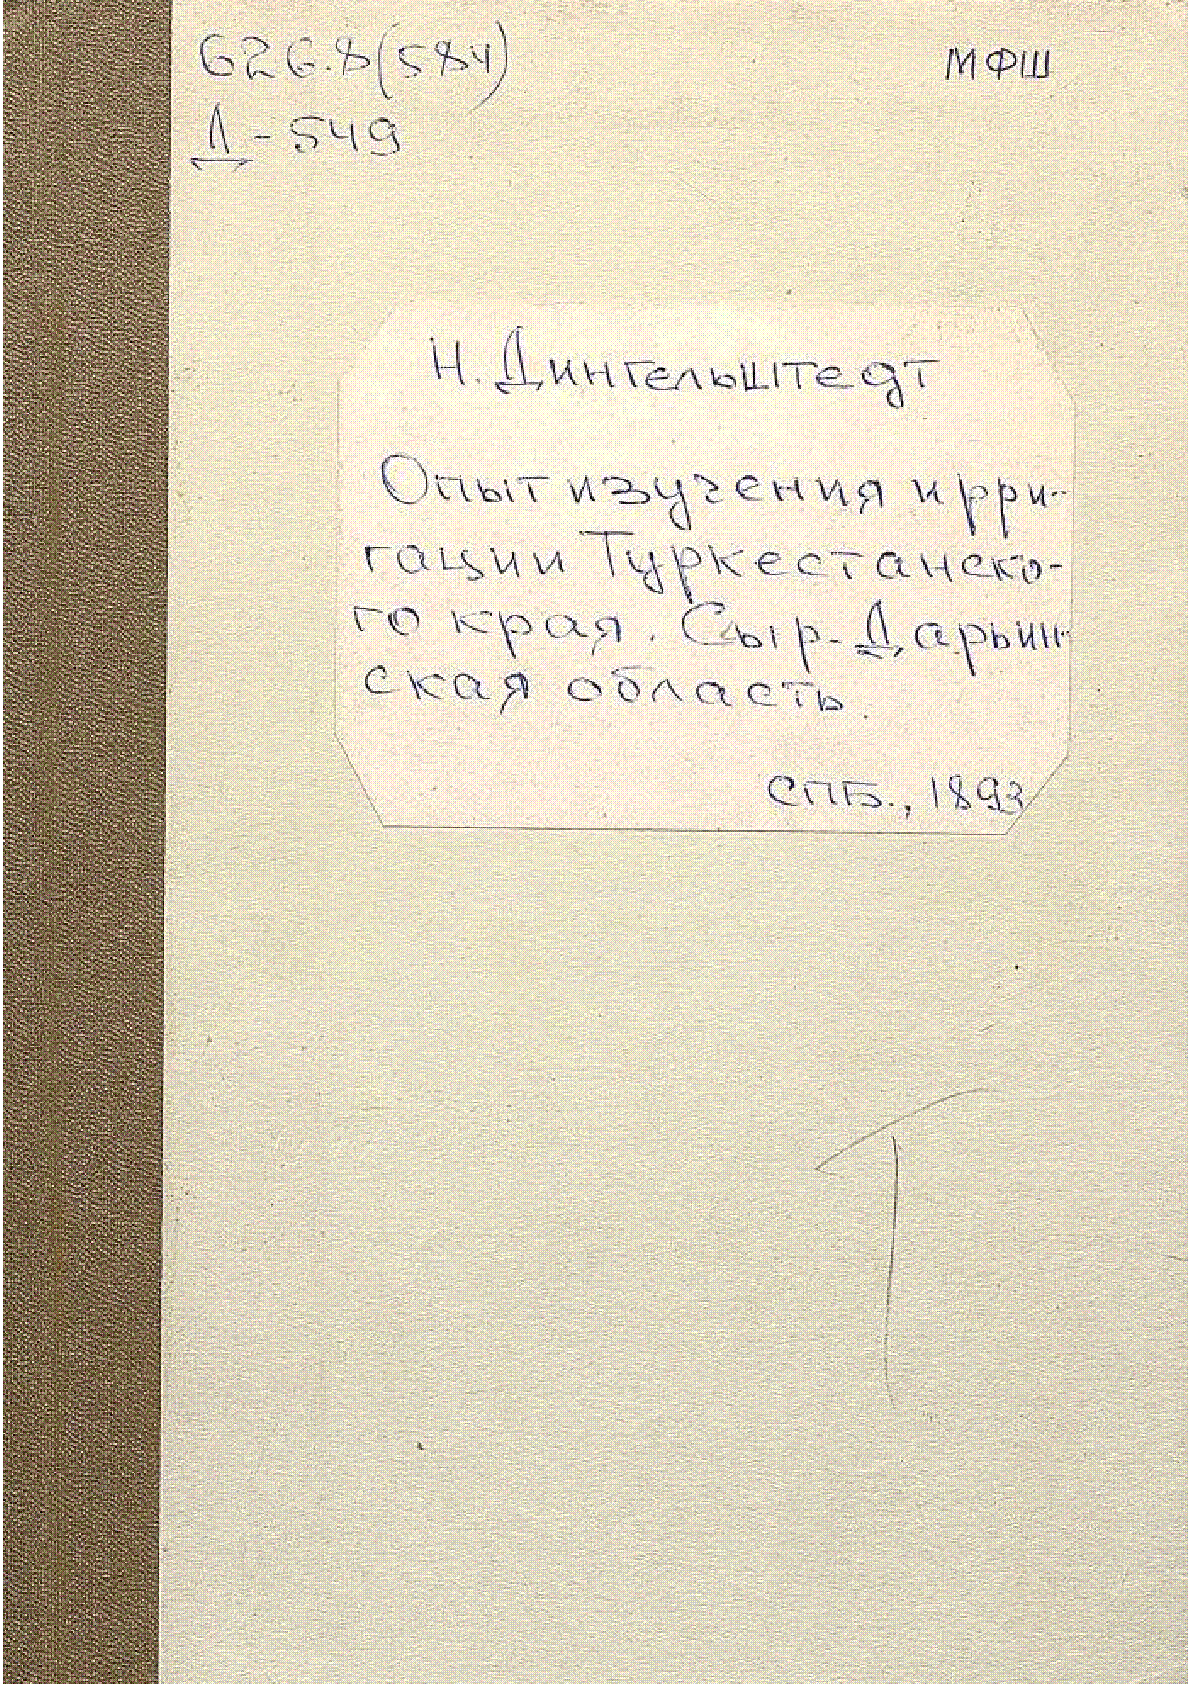 626.8(584)
МФШ
Д-549
Н. Дингельштедт
Опыт изучения ирри-
гации Туркестанско-
го края. Сыр-Дарьин-
ская область.
СПБ., 1893